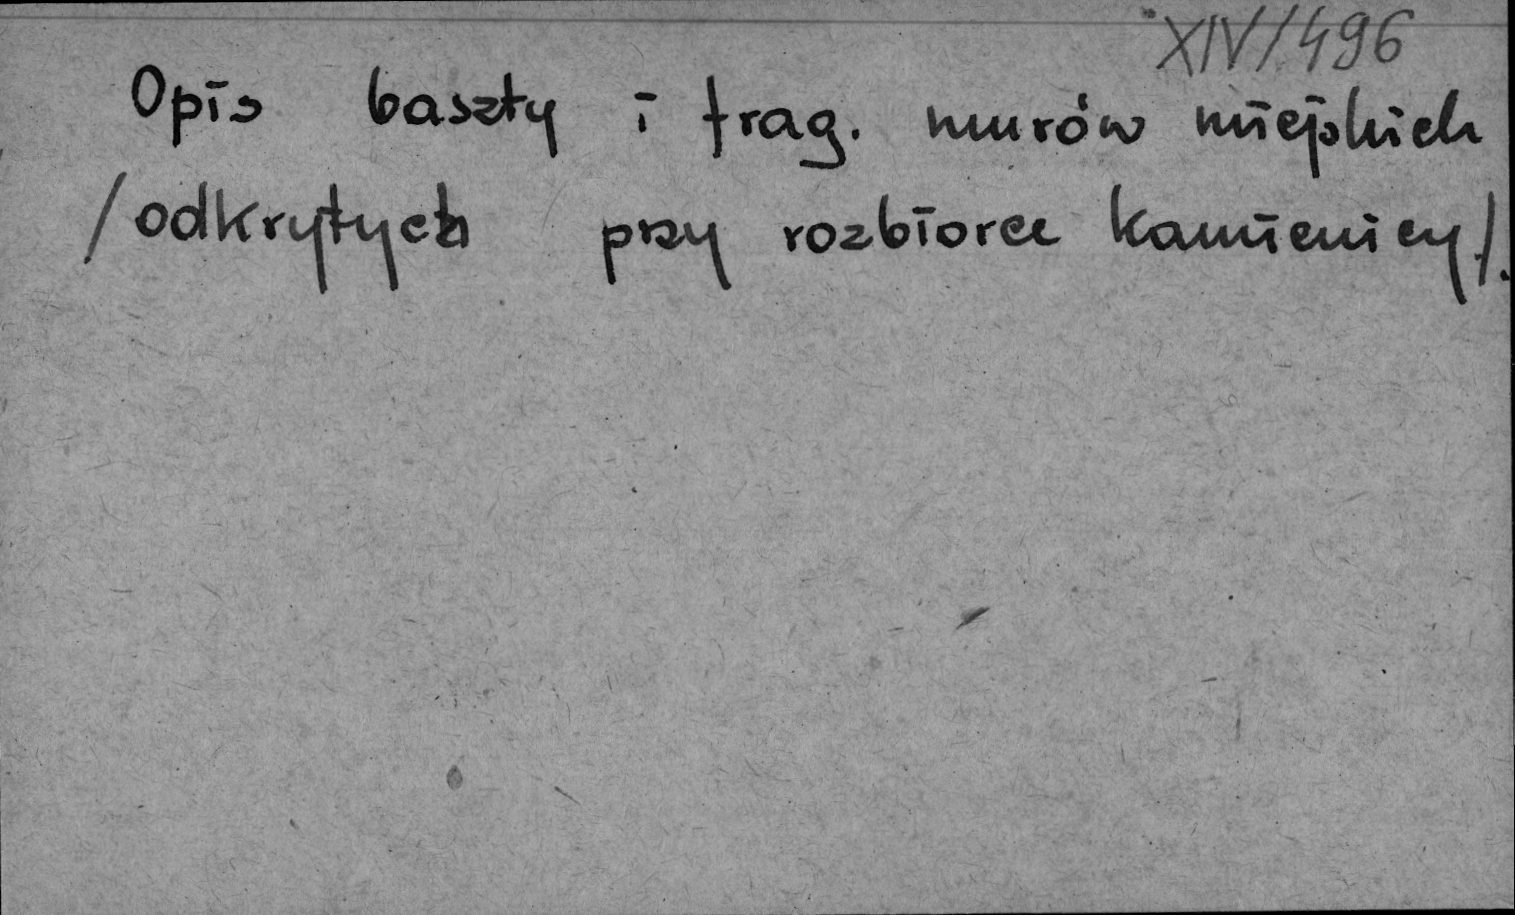 XIV/496
Opis baszty i frag. murów miejskich
/odkrytych przy rozbiorce kamienicy/.